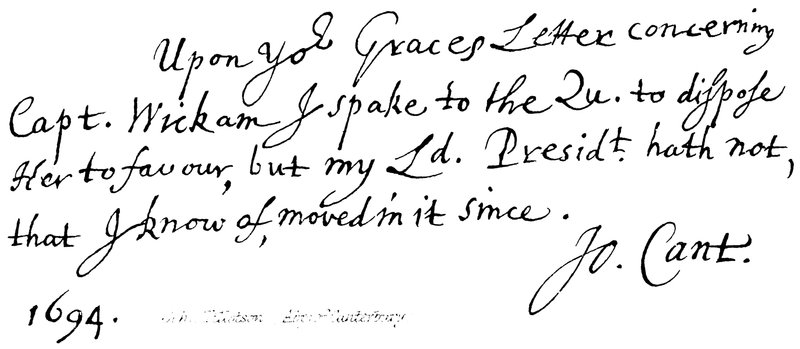 Upon yoʳ Graces Letter concerning
Capt. Wickam I spake to the Qu. to dispose
Her to favour, but my Ld. Presidt. hath not,
that I know of, moved in it since.
Jo. Cant.
1694.
Tillotson Abp. Canterbury